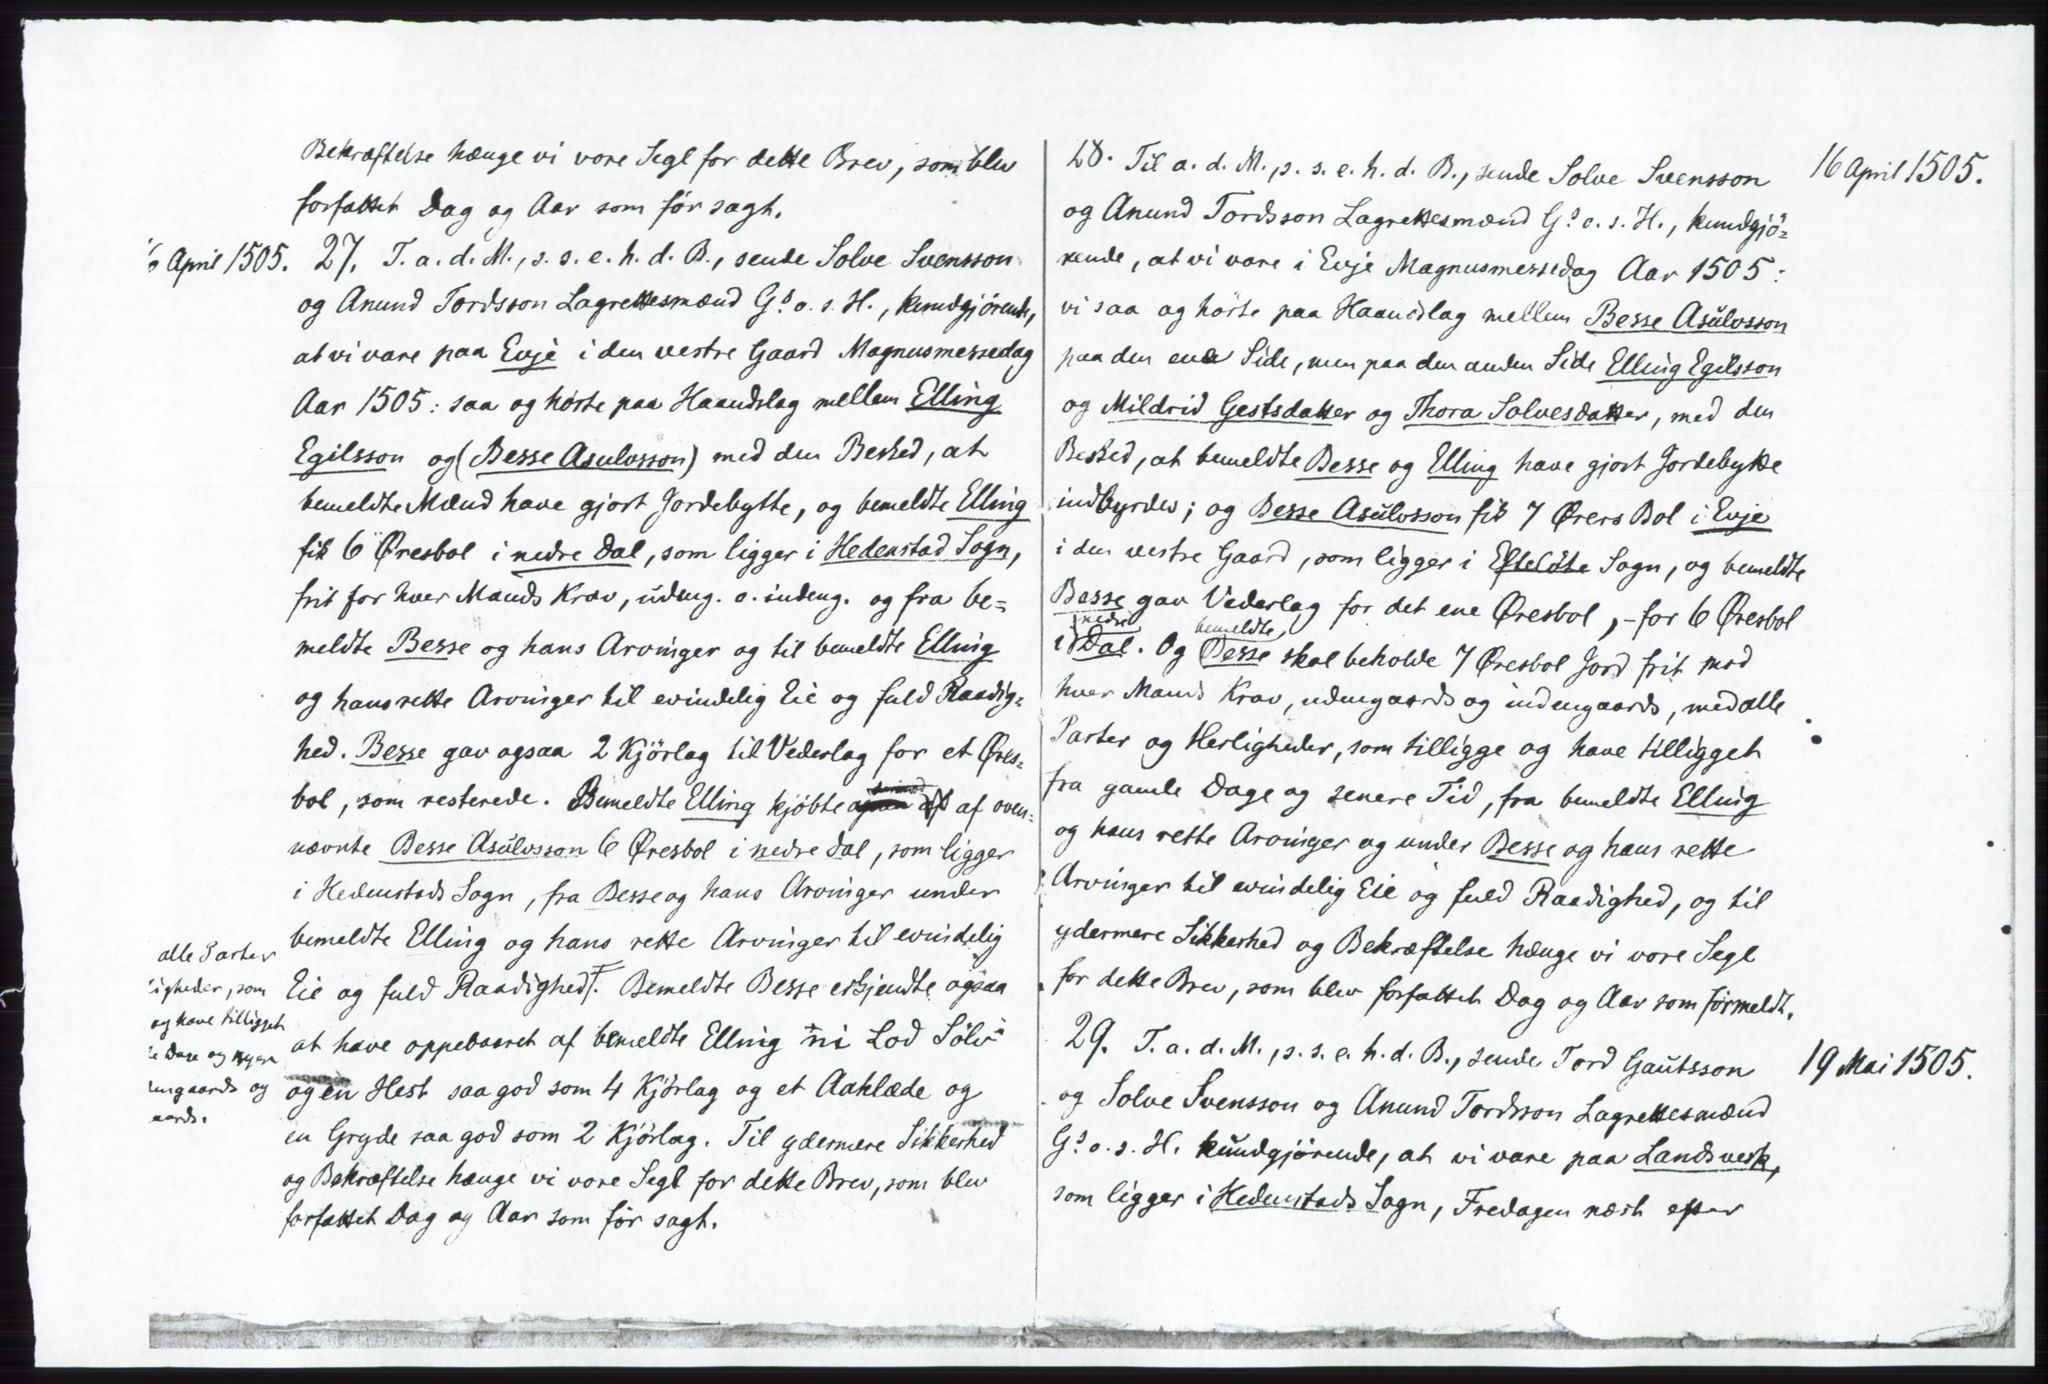 Bekræftelse hænge vi vore Segl for dette Brev, som blev
forfattet Dag og Aar som før sagt.
April 1505.
27. T. a. d. M., s. s. e. h. d. B., sende Solve Svensson
og Anund Tordsson Lagrettesmænd Gs. o. s. H., kundgjörende,
at vi vare paa Evje i den vestre Gaard Magnusmessedag
Aar 1505: saa og hørte paa Haandslag mellem Elling
Egilsson og (Besse Asulvsson) med den Besked, at
bemeldte Mænd have gjort Jordebytte, og bemeldte Elling
fik 6 Øresbol i nedre Dal, som ligger i Hedenstad Sogn,
frit for hver Mands Krav, udeng. o. indeng. og fra be=
meldte Besse og hans Arvinger og til bemeldte Elling
og hans rette Arvinger til evindelig Eie og fuld Raadig=
hed. Besse gav ogsaa 2 Kjörlag til Vederlag for et Øres=
bol, som resterede. Bemeldte Elling kjöbte af oven=
nævnte Besse Asulvsson 6 Øresbol i nedre Dal, som ligger
i Hedenstads Sogn, fra Besse og hans Arvinger under
bemeldte Elling og hans rette Arvinger til evindelig
Eie og fuld Raadighed. Bemeldte Besse erkjendte ogsaa
at have oppebaaret af bemeldte Elling ni Lod Sölv
og en Hest saa god som 4 Kjörlag og et Aaklæde og
en Gryde saa god som 2 Kjörlag. Til ydermere Sikkerhed
og Bekræftelse hænge vi vore Segl for dette Brev, som blev
forfattet Dag og Aar som før sagt.
alle Parter
igheder, som
og have tilligget
Dage og nyere
engaards og
aards.
28. Til a. d. M., s. s. e. h. d. B., sende Solve Svensson
16 April 1505.
og Anund Tordsson Lagrettesmænd Gs. o. s. H., kundgjö=
rende, at vi vare i Evje Magnusmessedag Aar 1505:
vi saa og hørte paa Haandslag mellem Besse Asulvsson
paa den ene Side, men paa den anden Side Elling Egilsson
og Mildrid Gestsdatter og Thora Solvesdatter, med den
Besked, at bemeldte Besse og Elling have gjort Jordebytte
indbyrdes; og Besse Asulvsson fik 7 Ørers Bol i Evje
i den vestre Gaard, som ligger i Efteløte Sogn, og bemeldte
Besse gav Vederlag for det ene Øresbol, – for 6 Øresbol
nedre bemeldte
i Dal. Og Besse skal beholde 7 Øresbol Jord frit mod
hver Mands Krav, udengaards og indengaards, med alle
Parter og Herligheder, som tilligge og have tilligget
fra gamle Dage og senere Tid, fra bemeldte Elling
og hans rette Arvinger og under Besse og hans rette
Arvinger til evindelig Eie og fuld Raadighed, og til
ydermere Sikkerhed og Bekræftelse hænge vi vore Segl
for dette Brev, som blev forfattet Dag og Aar som förmeldt.
29. T. a. d. M., s. s. e. h. d. B., sende Tord Gautsson
19 Mai 1505.
og Solve Svensson og Anund Tordsson Lagrettesmænd
Gs. o. s. H. kundgjörende, at vi vare paa Landsverk,
som ligger i Hedenstads Sogn, Fredagen næst efter